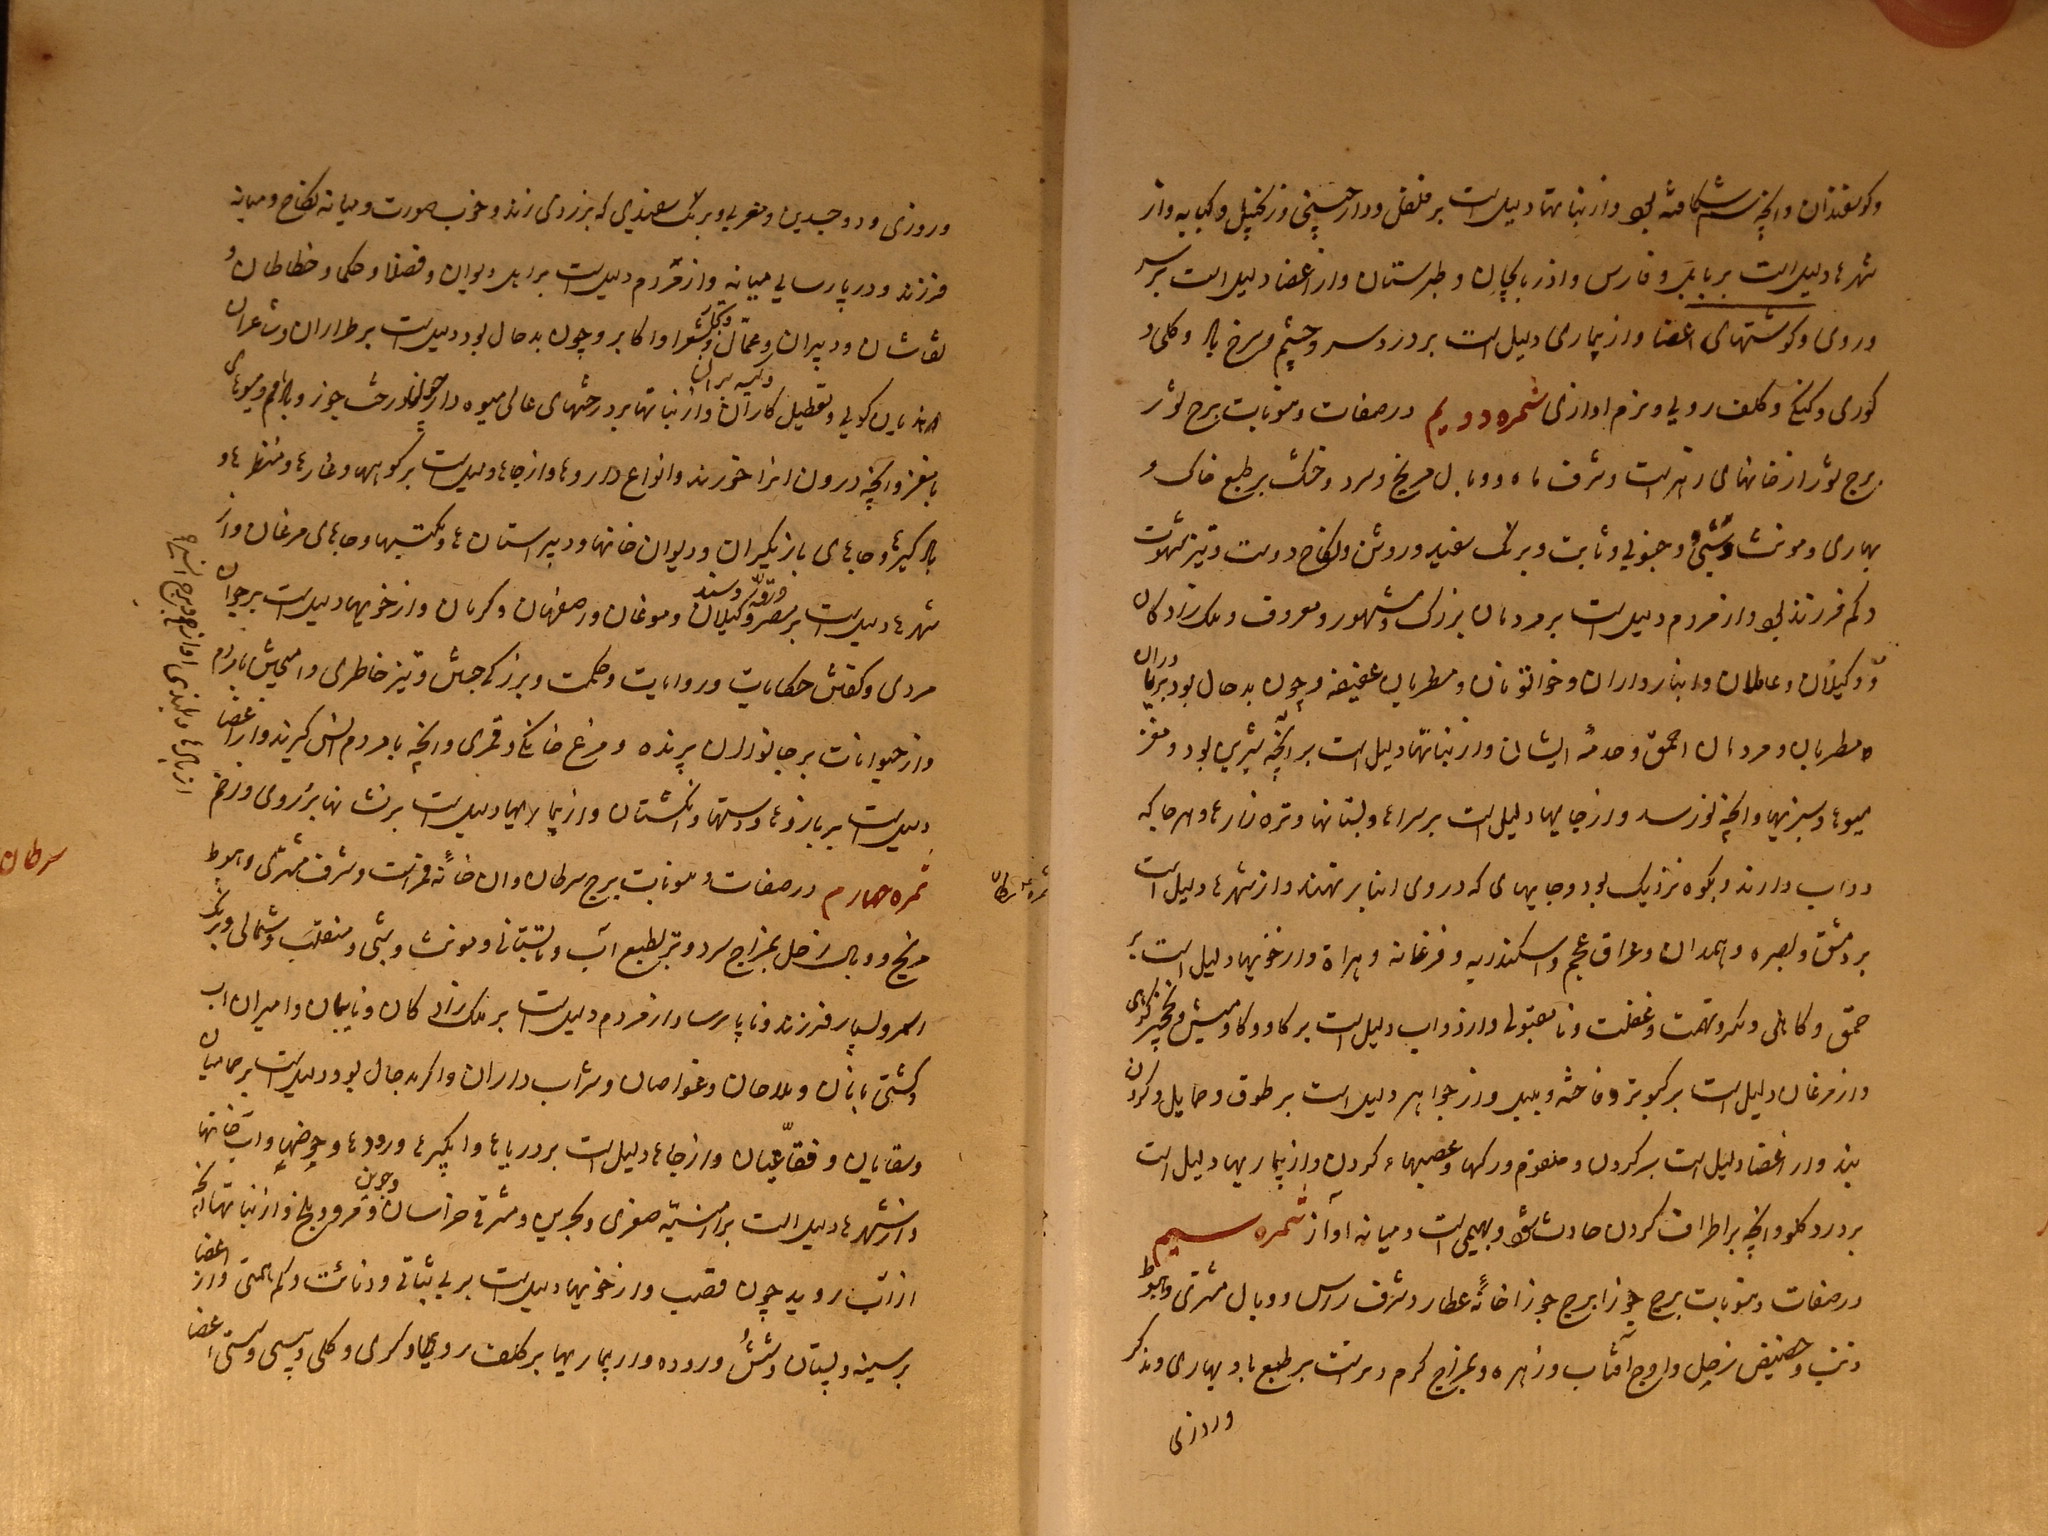 وکوسفندان وانچه سم شکافته بود وازنباتها دلیل است بر فلفل ودارچینی وزنجبیل وکبابه واز
شهرها دلیل است بر بابل وفارس واذربایجان وطبرستان واز اعضا دلیل است بر سر
وروی وگوشتهای اعضا واز بیماری دلیل است بر درد سر وچشم وسرخ باد وکلی و
کوری وگنگی وکلف رویی ونرم اوازی ثمره دویم در صفات ومنوبات برج ثور
برج ثور از خانهای زهره است وشرف ماه ووبال مریخ وسرد وخشک بر طبع خاک و
بهاری ومونث وشبی وجنوبی وثابت وبرنگ سفید وروشن ونکاح دوست وتیز شهوت
وکم فرزند بود واز مردم دلیل است بر مردمان بزرگ ومشهور ومعروف وملک زادگان
ووکیلان وعاملان وانبارداران وخواتونان ومطربان عفیفه وچون بدحال بود بر
مطربان ومردمان احمق وخدمه ایشان واز نباتها دلیل است بر انچه شیرین بود ومغز
میوها وسبزیها وانچه نورسد واز جایها دلیل است بر سراها وبستانها وتره زارها وهر جا که
دواب دارند وبکوه نزدیک بود وجایهای که در وی انبار نهند واز شهرها دلیل است
بر دمشق وبصره وهمدان وعراق عجم واسکندریه وفرغانه وهراة واز خویها دلیل است بر
حمق وکاهلی ومکر وتهمت وغفلت ونامقبولی واز دواب دلیل است بر گاو وگاومیش ونخچیر کوهی
واز مرغان دلیل است بر کبوتر وفاخته وبلبل واز جواهر دلیل است بر طوق وحمایل وگردن
بند واز اعضا دلیل است بر گردن وحلقوم ورگها وعصبهاء گردن واز بیماریها دلیل است
بر درد گلو وانچه بر اطراف گردن حادث شود وبهیمی است ومیانه آواز ثمره سیم
در صفات ومنوبات برج جوزا برج جوزا خانهٔ عطارد وشرف راس ووبال مشتری وهبوط
ذنب وحضیض زحل واوج آفتاب وزهره وبمزاج گرم وتر است بر طبع باد وبهاری ومذکر
وروزی
وروزی ودو جسدین ومغربی وبرنگ سفیدی که بزردی زند وخوب صورت ومیانه نکاح ومیانه
فرزند ودر پارسایی میانه واز مردم دلیل است بر اهل دیوان وفضلا وحکما وخطاطان و
نقاشان ودبیران وعمال وشعرا واکابر وچون بدحال بود دلیل است بر طراران وشاعران
هذیان گویی وتعطیل کاران واز نباتها بر درختهای عالی میوه دار چون درخت جوز وبادام ومیوهای
بامغز وانچه درون انرا خورند وانواع داروها واز جاها دلیل است بر کوهها وغارها ومنظرها و
بادگیرها وجاهای بازیگران ودیوان خانها ودبیرستان ها ومکتبها وجاهای مرغان واز
شهرها دلیل است بر مصر وگیلان وموغان واصفهان وکرمان واز خویها دلیل است بر جوان
مردی وگفتن حکایات وروایات وحکمت وبزرگ منش وتیز خاطری وامیزش بامردم
واز حیوانات بر جانوران پرنده ومرغ خانگی وقمری وانچه بامردم انس گیرند واز اعضا
دلیل است بر بازوها ودستها وانگشتان واز بیماریها دلیل است بر نشانها بر روی وزخم
از بادها وبلندی آواز وبرج
ثمره چهارم در صفات ومنوبات برج سرطان وان خانهٔ قمر است وشرف مشتری وهبوط
ثمره سرطان
سرطان
مریخ ووبال زحل بمزاج سرد وتر بطبع آب وتابستانی ومونث وشبی ومنقلب وشمالی وبرنگ
اسمر وبسیار فرزند وناپارسا واز مردم دلیل است بر ملک زادگان ونایبان وامیران اب
وکشتی بانان وملاحان وغواصان وشراب داران واگر بدحال بود دلیل است بر حمامیان
وسقایان وفقاعیان واز جاها دلیل است بر دریاها وآبگیرها ورودها وحوضها وآب خانها
واز شهرها دلیل است بر ارمنیهٔ صغری وبحرین ومشرقی خراسان ومرو وبلخ واز نباتها انچه
از آب روید چون قصب واز خویها دلیل است بر بی ثباتی ودنائت وکم همتی واز اعضا
بر سینه وپستان وشش وروده واز بیماریها بر کلف روی وکری وکلی وپیسی وسستی اعضا